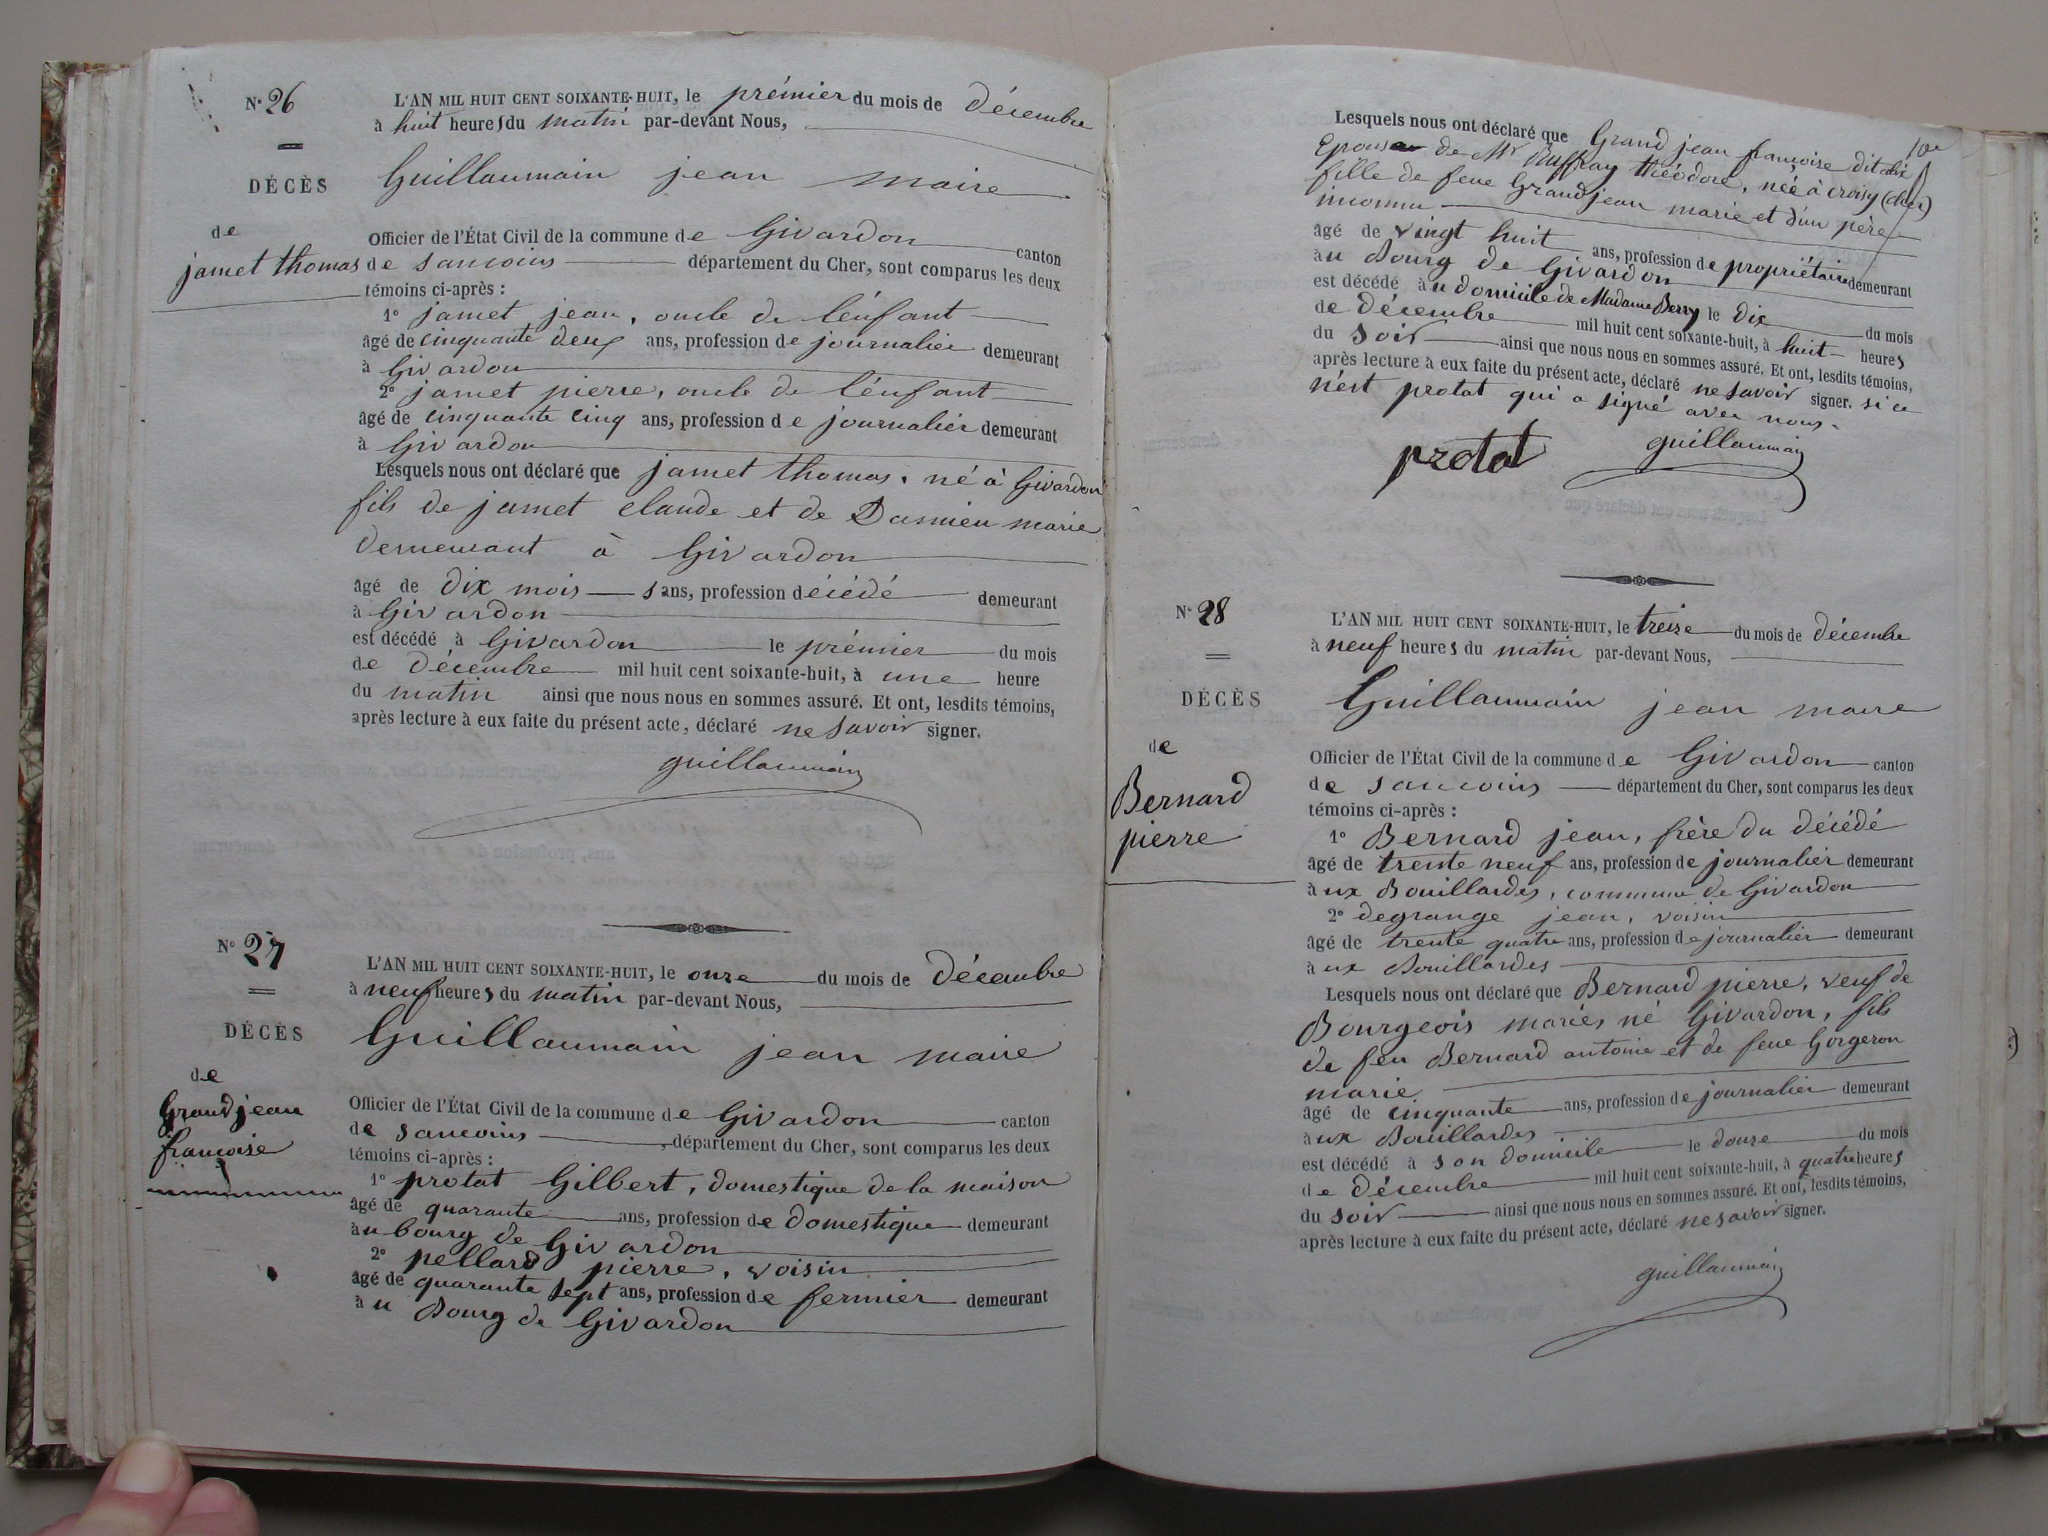 N° 26
L'AN MIL HUIT CENT SOIXANTE-HUIT, le prémier du mois de décembre
à huit heures du matin par-devant Nous,
DÉCÈS
Guillaumain jean maire
de
jamet thomas
Officier de l'État Civil de la commune de Givardon canton
de sancoins département du Cher, sont comparus les deux
témoins ci-après :
1° jamet jean, oncle de l'énfant
âgé de cinquante deux ans, profession de journalier demeurant
à Givardon
2° jamet pierre, oncle de l'énfant
âgé de cinquante cinq ans, profession de journalier demeurant
à Givardon
Lesquels nous ont déclaré que jamet thomas, né à Givardon
fils de jamet claude et de Damien marie
demeurant à Givardon
âgé de dix mois sans, profession décédé demeurant
à Givardon
est décédé à Givardon le prémier du mois
de décembre mil huit cent soixante-huit, à une heure
du matin ainsi que nous nous en sommes assuré. Et ont, lesdits témoins,
après lecture à eux faite du présent acte, déclaré ne savoir signer.
guillaumain
N° 27
L'AN MIL HUIT CENT SOIXANTE-HUIT, le onze du mois de décembre
à neuf heures du matin par-devant Nous,
DÉCÈS
Guillaumain jean maire
de
Grandjean
francoise
Officier de l'État Civil de la commune de Givardon canton
de sancoins département du Cher, sont comparus les deux
témoins ci-après :
1° protat Gilbert, domestique de la maison
âgé de quarante ans, profession de domestique demeurant
au bourg de Givardon
2° pellard pierre, voisin
âgé de quarante sept ans, profession de fermier demeurant
au Bourg de Givardon
Lesquels nous ont déclaré que Grand jean françoise dit
Epouse de Mr Buffray théodore, née à croisy (cher)
fille de feue Grandjean marie et d'un père
inconnu
âgé de vingt huit ans, profession de propriétaire demeurant
au Bourg de Givardon
est décédé au domicile de Madame Berry le dix du mois
de décembre mil huit cent soixante-huit, à huit heures
du soir ainsi que nous nous en sommes assuré. Et ont, lesdits témoins,
après lecture à eux faite du présent acte, déclaré ne savoir signer. si ce
n'est protat qui a signé avec nous.
protat guillaumain
N° 28
L'AN MIL HUIT CENT SOIXANTE-HUIT, le treize du mois de décembre
à neuf heures du matin par-devant Nous,
DÉCÈS
Guillaumain jean maire
de
Bernard
pierre
Officier de l'État Civil de la commune de Givardon canton
de sancoins département du Cher, sont comparus les deux
témoins ci-après :
1° Bernard jean, frère du décédé
âgé de trente neuf ans, profession de journalier demeurant
aux Bouillardes, commune de Givardon
2° degrange jean, voisin
âgé de trente quatre ans, profession de journalier demeurant
aux Bouillardes
Lesquels nous ont déclaré que Bernard pierre, veuf de
Bourgeois marie, né Givardon, fils
de feu Bernard antoine et de feue Gorgeron
marie
âgé de cinquante ans, profession de journalier demeurant
aux Bouillardes
est décédé à son domicile le douze du mois
de décembre mil huit cent soixante-huit, à quatre heures
du soir ainsi que nous nous en sommes assuré. Et ont, lesdits témoins,
après lecture à eux faite du présent acte, déclaré ne savoir signer.
guillaumain